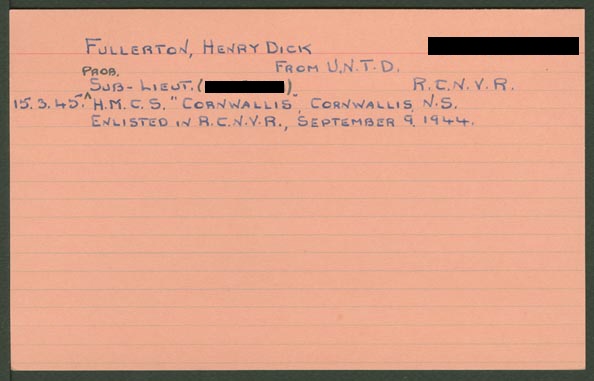 FULLERTON, HENRY DICK
FROM U.N.T.D.
PROB.
SUB-LIEUT. ( ) R.C.N.V.R.
15.3.45. ^ H.M.C.S. "CORNWALLIS", CORNWALLIS, N.S.
ENLISTED IN R.C.N.V.R., SEPTEMBER 9, 1944.